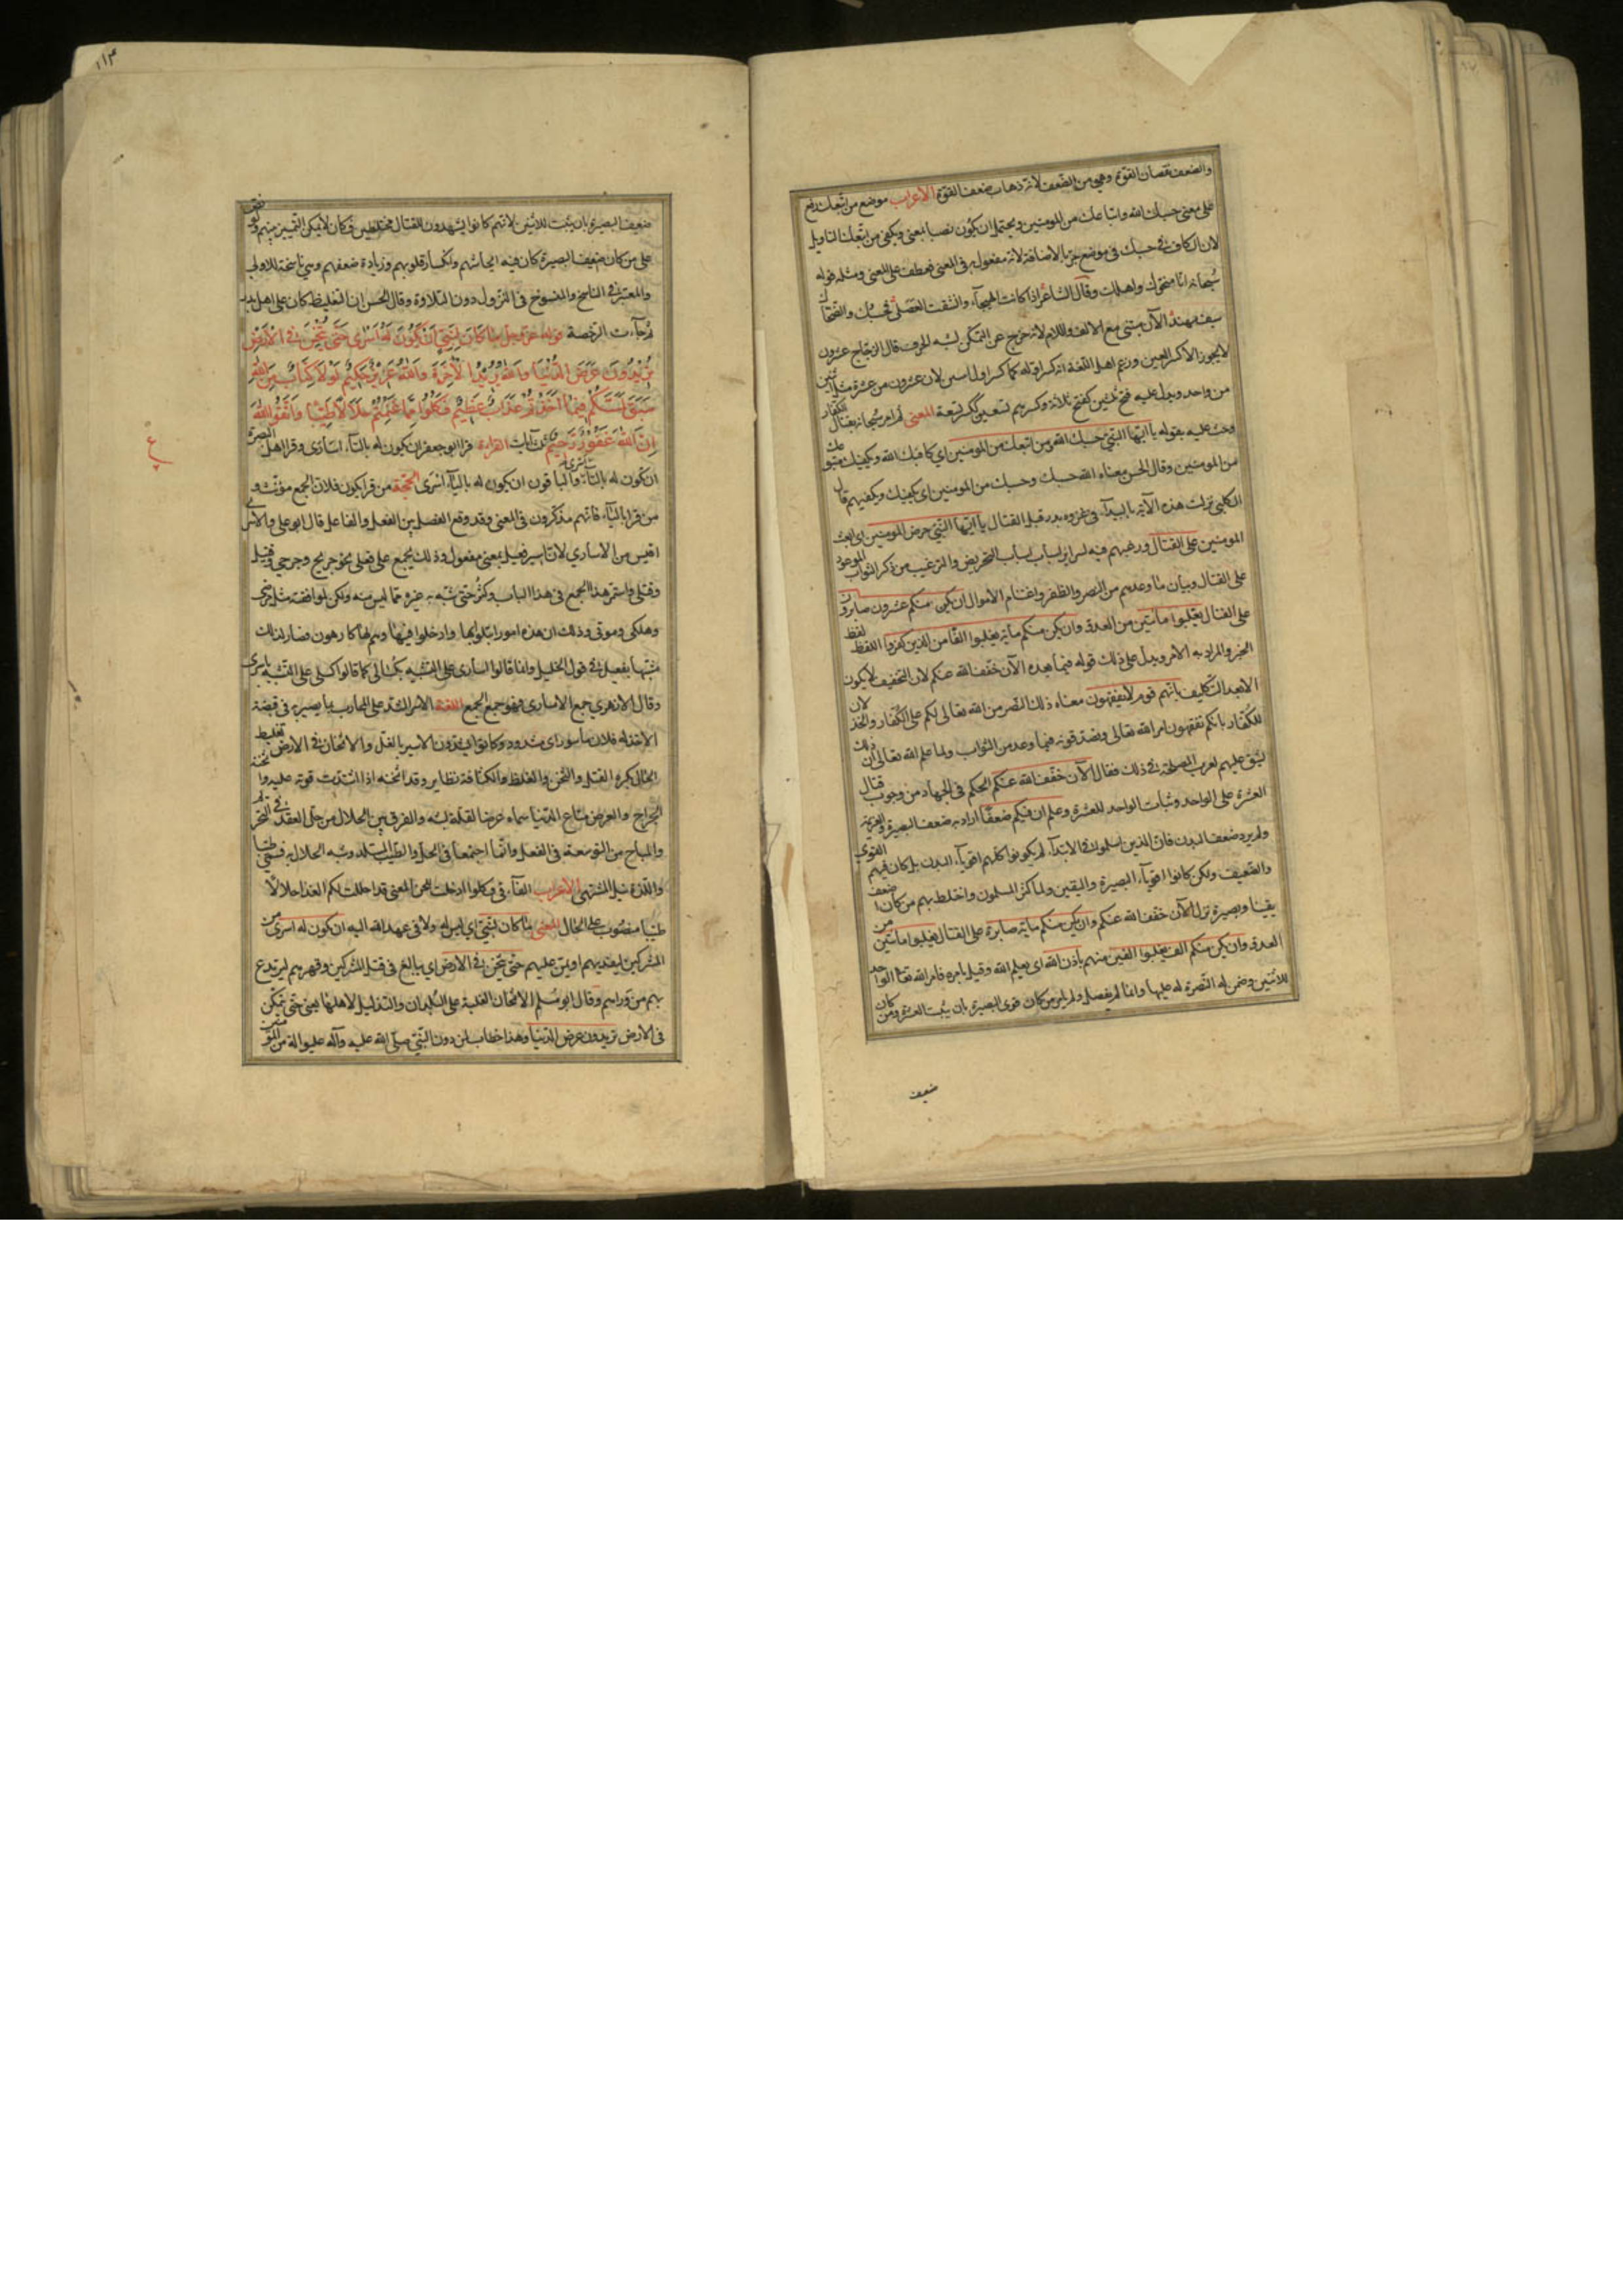 والضعف نقصان القوة وهو من الضعف لانه ذهاب ضعف القوة الاعراب موضع من اتبعك رفع
على معنى حسبك الله واتباعك من المومنين ويحتمل ان يكون نصبا بمعنى ويكفي من اتبعك التاويل
لان الكاف في حسبك في موضع جر بالاضافة لانه مفعول به في المعنى فعطف على المعنى ومثله قوله
سبحانه انا منجوك واهلك وقال الشاعر اذا كانت الهيجاء وانشقت العصى فحسبك والضحاك
سيف مهند الآن مبني مع الالف واللام لانه خرج عن التمكن بشبه الحرف قال الزجاج عشرون
لا يجوز الا كسر العين وزعم اهل اللغة انه كسر اوله كما كسر اول اثنين لان عشرون من عشرة مثل اثنين
من واحد ويدل عليه فتح ثلثين كفتح ثلاثة وكسرهم تسعين ككسر تسعة المعنى ثم امر سبحانه بقتال الكفار
وحث عليه بقوله يا ايها النبي حسبك الله ومن اتبعك من المومنين اي كافيك الله ويكفيك متبعوك
من المومنين وقال الحسن معناه الله حسبك وحسبك من المومنين اي يكفيك ويكفيهم قال
الكلبي نزلت هذه الآية بالبيداء في غزوة بدر قبل القتال يا ايها النبي حرض المومنين اي ابعث
المومنين على القتال ورغبهم فيه بسائر اسباب التحريض والترغيب من ذكر الثواب الموعود
على القتال وبيان ما وعدهم من النصر والظفر واغتنام الاموال ان يكن منكم عشرون صابرون
على القتال يغلبوا مأتين من العدو وان يكن منكم مأية يغلبوا الفا من الذين كفروا اللفظ لفظ
الخبر والمراد به الامر ويدل على ذلك قوله فيما بعده الآن خفف الله عنكم لان التخفيف لا يكون
الا بعد التكليف بانهم قوم لا يفقهون معناه ذلك النصر من الله تعالى لكم على الكفار والخذلان
للكفار بانكم تفقهون امر الله تعالى وتصدقونه فيما وعد من الثواب ولما علم الله تعالى ان ذلك
يشق عليهم تغيرت المصلحة في ذلك فقال الآن خفف الله عنكم الحكم في الجهاد من وجوب قتال
العشرة على الواحد وثبات الواحد للعشرة وعلم ان فيكم ضعفا اراد به ضعف البصيرة والعزيمة
ولم يرد ضعف البدن فان الذين اسلموا في الابتداء لم يكونوا كلهم اقوياء البدن بل كان فيهم القوي
والضعيف ولكن كانوا اقوياء البصيرة واليقين ولما كثر المسلمون واختلط بهم من كان اضعف
يقينا وبصيرة نزل الآن خفف الله عنكم وان يكن منكم ماية صابرة على القتال يغلبوا مائتين من
العدو وان يكن منكم الف يغلبوا الفين منهم باذن الله اي بعلم الله وقيل بامره فامر الله تعا الواحد
للاثنين وضمن له النصرة له عليها وانما لم يفصل ولم يامر من كان قوي البصيرة بان يثبت العشرة ومن كان
ضعيف
١١٣
ضعيف البصيرة بان يثبت للاثنين لانهم كانوا يشهدون القتال مختلطين فكان لا يمكن التمييز بينهم
على من كان ضعيف البصيرة كان فيه ايحاشهم وانكسار قلوبهم وزيادة ضعفهم وهي ناسخة للاولى
والمعتبر في الناسخ والمنسوخ في النزول دون التلاوة وقال الحسن ان التغليظ كان على اهل بدر
ثم جاءت الرخصة قوله عز وجل ما كان لنبي ان يكون له اسرى حتى يثخن في الارض
تريدون عرض الدنيا والله يريد الآخرة والله عزيز حكيم لولا كتاب من الله
سبق لمسكم فيما اخذتم عذاب عظيم فكلوا مما غنمتم حلالا طيبا واتقوا الله
ان الله غفور رحيم آيات القراءة قرا ابو جعفر ان يكون له بالتاء اسارى وقرا اهل البصرة
ان تكون له بالتاء اسرى والباقون ان يكون له بالياء اسرى الحجة من قرا تكون فلان الجمع مؤنث و
من قرا بالياء فانهم مذكرون في المعنى وقد وقع الفصل بين الفعل والفاعل قال ابو علي والاسرى
اقيس من الاسارى لان اسير فعيل بمعنى مفعول وذلك يجمع على فعلى نحو جريح وجرحى وقتيل
وقتلى واستمر هذا الجمع في هذا الباب وكثر حتى شبه به غيره مما ليس منه ولكن لموافقته مثل مرضى
وهلكى وموتى وذلك ان هذه امور ابتلوا بها وادخلوا فيها وهم لها كارهون فصار لذلك
مشبها بفعيل في قول الخليل وانما قالوا اسارى على التشبيه بكسالى كما قالوا كسلى على التشبيه باسرى
وقال الازهري جمع الاسارى فهو جمع الجمع اللغة الاسر الشد على المحارب بما يصير به في قبضة
الاخذ له فلان ماسور اي مشدود وكانوا يشدون الاسير بالقد والاثخان في الارض تغليظ
الحال بكثرة القتل والثخن والغلظ والكثافة نظاير وقد اثخنه اذا اشتدت قوته عليه واثخنته
الجراح والعرض متاع الدنيا سماه عرضا لقلة لبثه والفرق بين الحلال من حل العقد في التحريم
والمباح من التوسعة في الفعل وانما اجتمعا في الحل والطيب المستلذ وشبه الحلال به فسمي طيبا
واللذة نيل المشتهى الاعراب الفاء في فكلوا دخلت للجزاء المعنى قد احللت لكم الفداء حلالا
طيبا منصوب على الحال المعنى ما كان لنبي اي ليس له ولا في عهد الله اليه ان يكون له اسرى من
المشركين ليفديهم او يمن عليهم حتى يثخن في الارض اي يبالغ في قتل المشركين وقهرهم ليرتدع
بهم من وراءهم وقال ابو مسلم الاثخان الغلبة على البلدان والتذليل لاهلها يعني حتى يتمكن
في الارض تريدون عرض الدنيا وهذا خطاب لمن دون النبي صلى الله عليه وآله من المؤمنين
ع